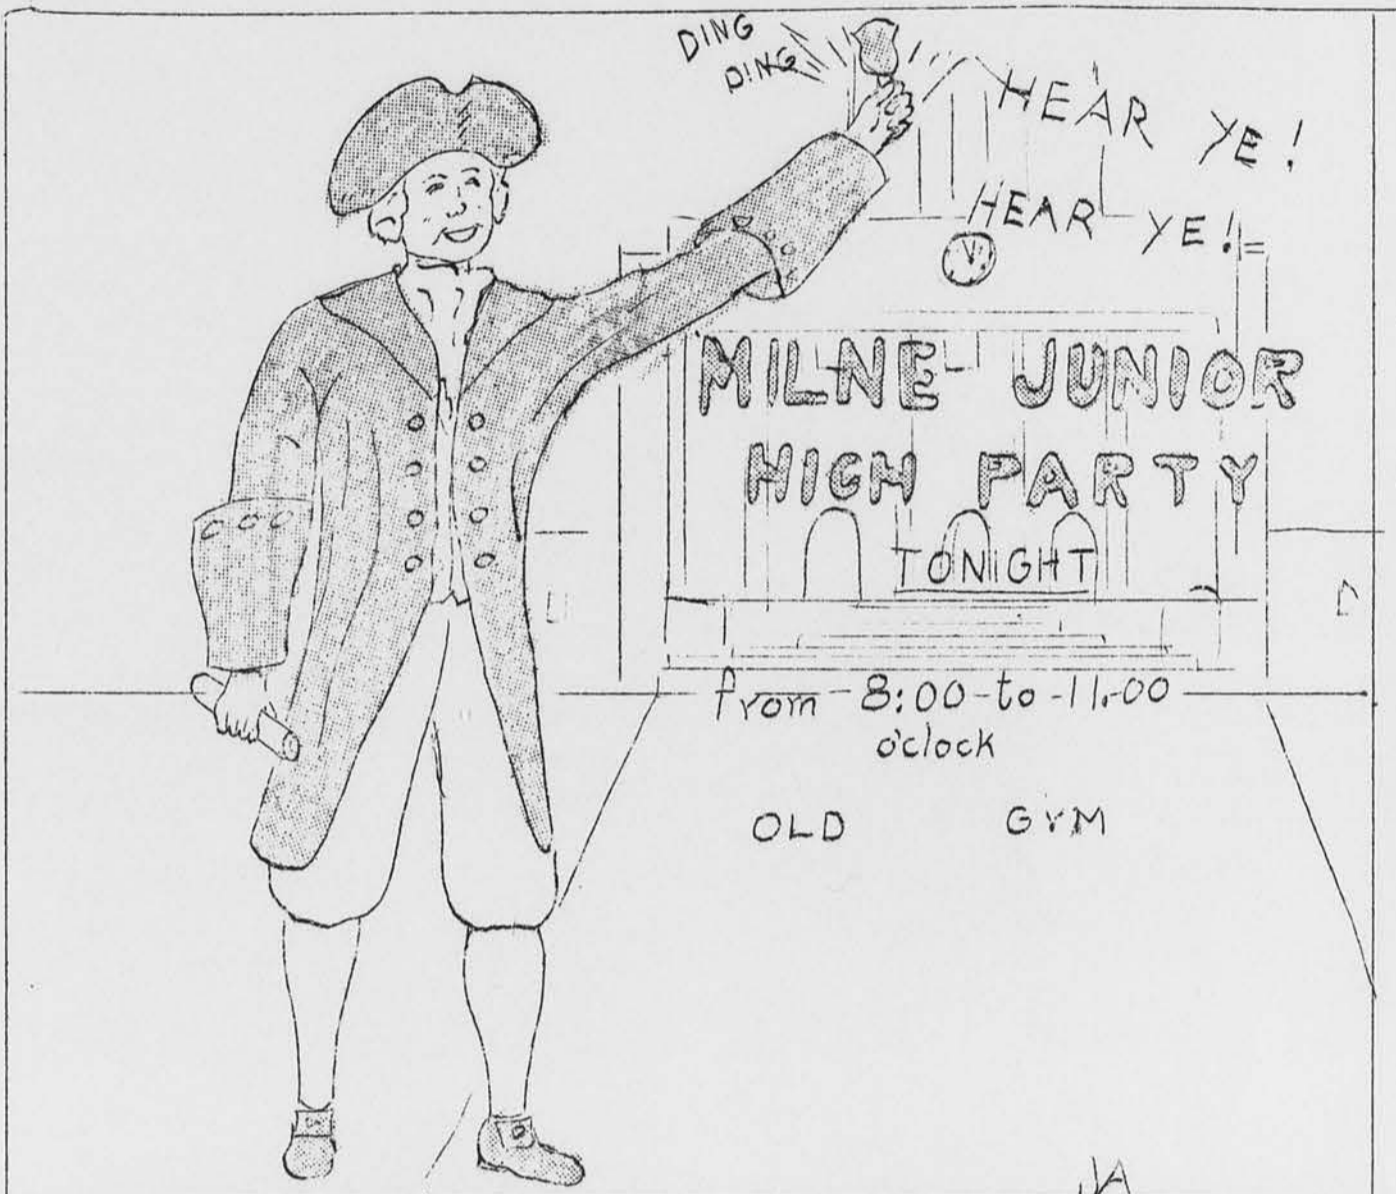 DING
DING
HEAR YE!
HEAR YE!
MILNE JUNIOR
HIGH PARTY
TONIGHT
from 8:00 to 11:00
o'clock
OLD GYM
JA